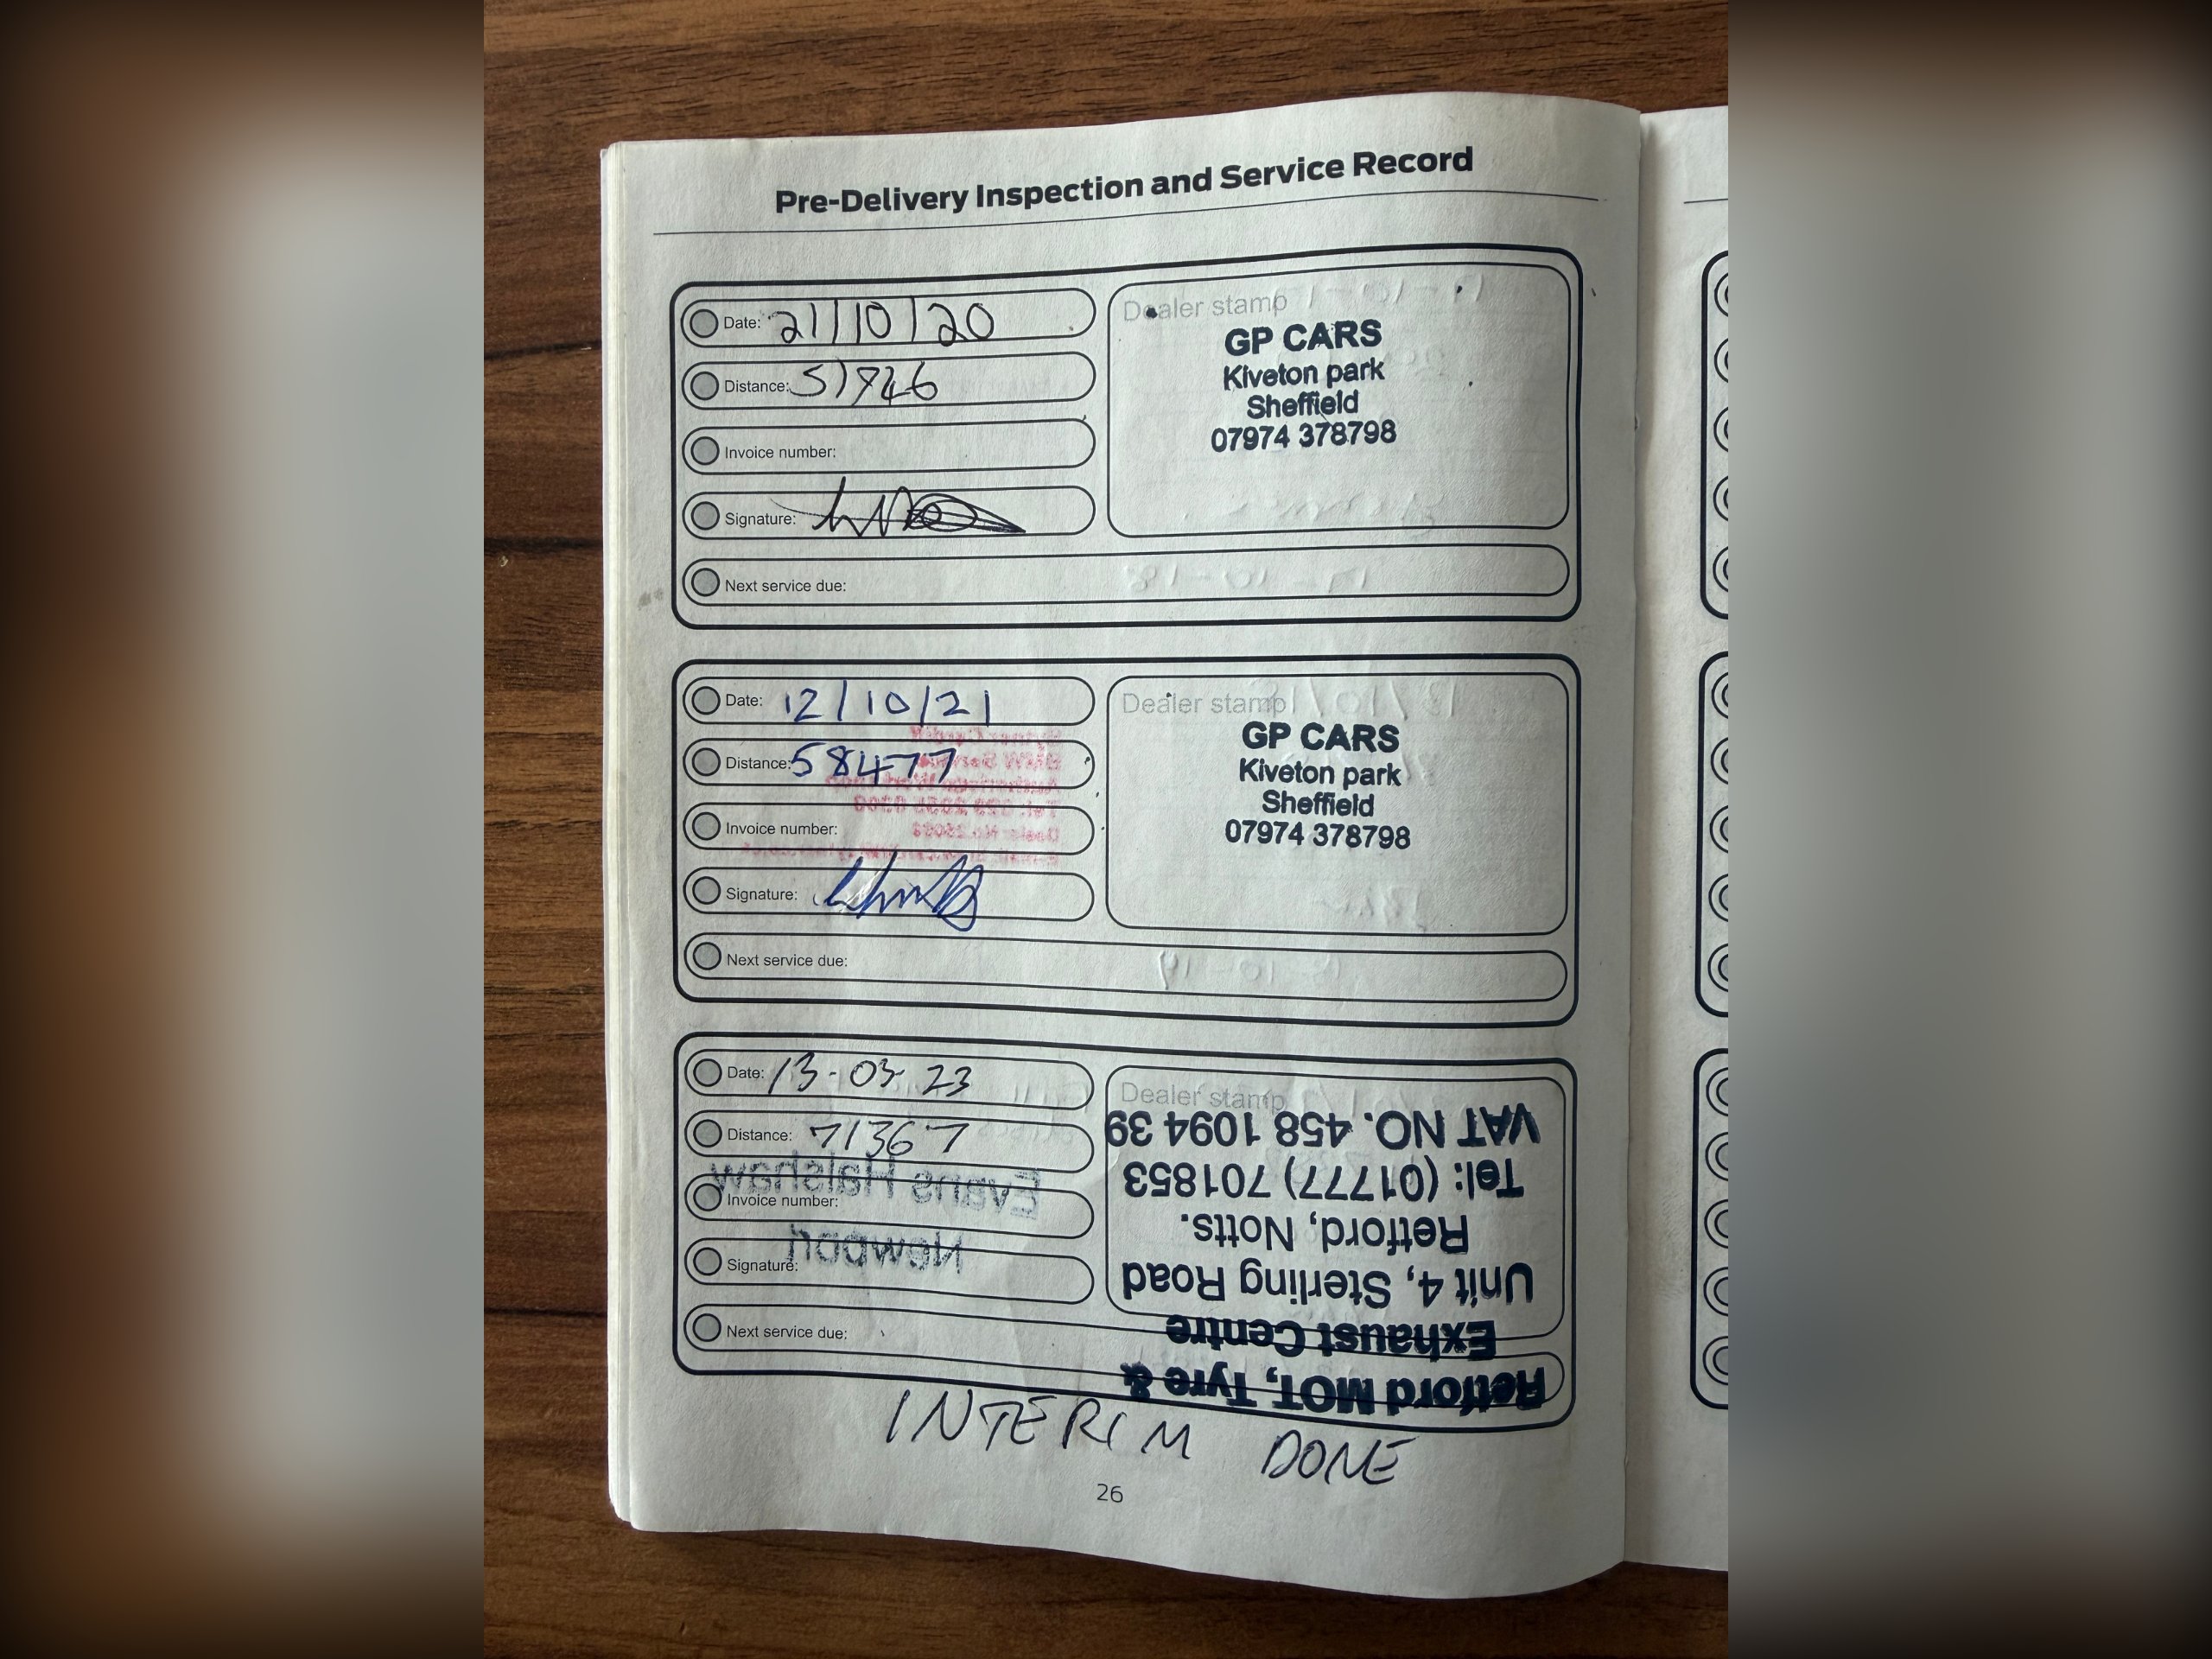 Pre-Delivery Inspection and Service Record
Date: 21/10/20
Distance: 51726
Invoice number:
Signature:
Next service due:
Dealer stamp
GP CARS
Kiveton park
Sheffield
07974 378798
Date: 12/10/21
Distance: 58477
Invoice number:
Signature:
Next service due:
Dealer stamp
GP CARS
Kiveton park
Sheffield
07974 378798
Date: 13-03-23
Distance: 71367
Invoice number:
Signature:
Next service due:
Evans Halshaw
Newport
Dealer stamp
Retford MOT, Tyre &
Exhaust Centre
Unit 4, Sterling Road
Retford, Notts.
Tel: (01777) 701853
VAT NO. 458 1094 39
INTERIM DONE
26